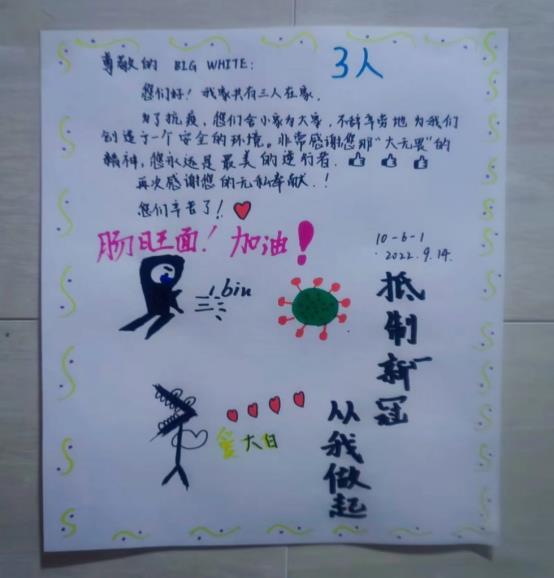 尊敬的 BIG WHITE:
3人
您们好！我家共有三人在家.
为了抗疫，您们舍小家为大家，不辞辛劳地为我们
创造了一个安全的环境。非常感谢您那“大无畏”的
精神，您永远是最美的逆行者.
再次感谢您的无私奉献.！
您们辛苦了！
肠旺面！加油！
10-6-1
2022.9.14.
biu
抵制新冠
从我做起
爱大白